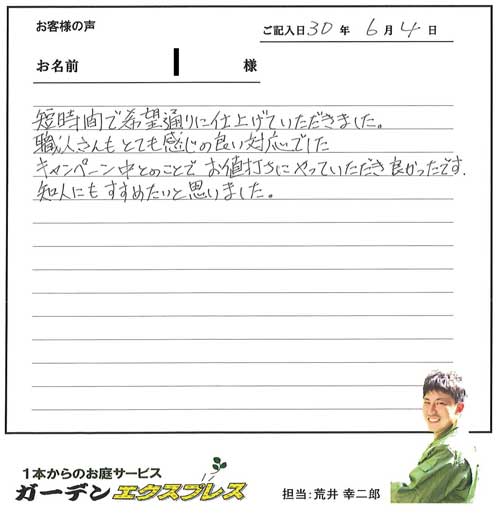 お客様の声
ご記入日 30 年 6 月 4 日
お名前 様
短時間で希望通りに仕上げていただきました。
職人さんもとても感じの良い対応でした
キャンペーン中とのことで お値打ちにやっていただき良かったです.
知人にもすすめたいと思いました。
1本からのお庭サービス
ガーデンエクスプレス
担当:荒井 幸二郎